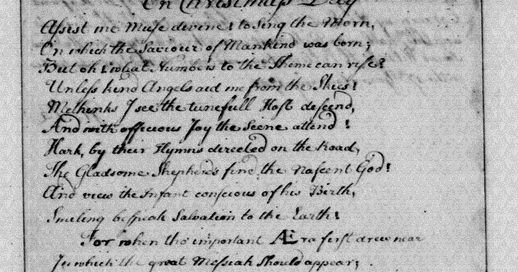 On Christmass Day
Assist me Muse divine! to Sing the Morn,
On which the Saviour of Mankind was born;
But oh! what Numbers to the Theme can rise?
Unless kind Angels aid me from the Skies!
Methinks I see the tunefull Host descend,
And with officious Joy the Scene attend!
Hark, by their Hymns directed on the Road,
The Gladsome Shepherds find the Nascent God!
And view the Infant conscious of his Birth,
Smiling bespeak Salvation to the Earth!
For when the important Æra first drew near
In which the great Messiah Should appear;